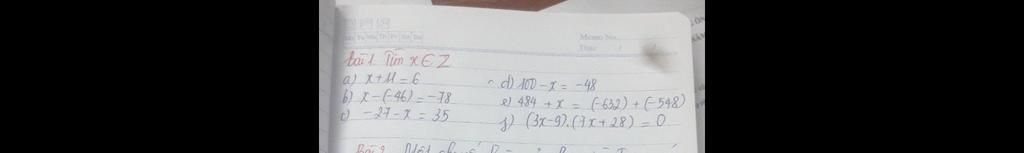 Memo No.
Date / /
Bài 1. Tìm x ∈ Z
a) x + 11 = 6
b) x - (-46) = -78
c) -27 - x = 35
d) 100 - x = -48
e) 484 + x = (-632) + (-548)
f) (3x-9).(7x+28) = 0
Bài 2